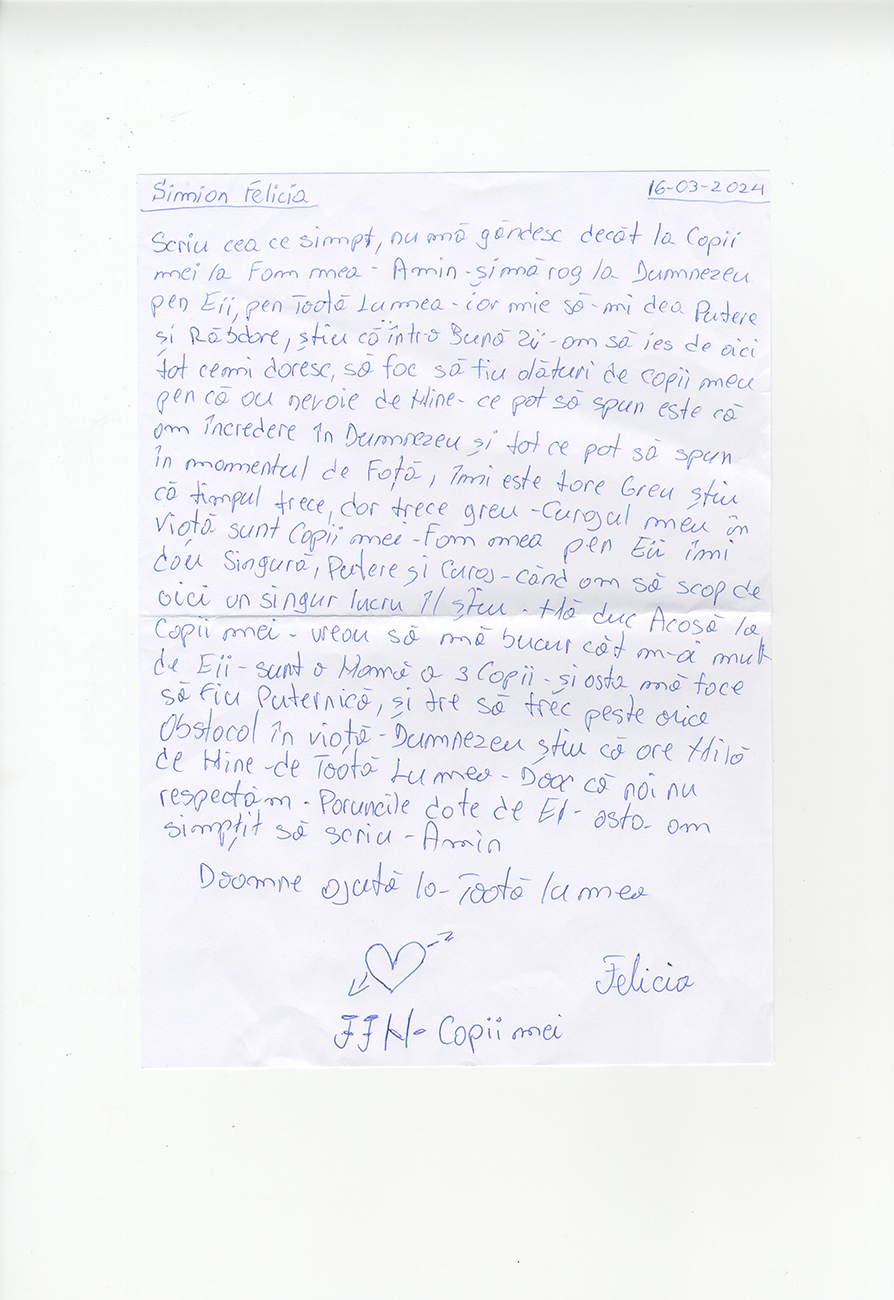 Simion Felicia
16-03-2024
Scriu cea ce simpt, nu mă gândesc decât la Copii
mei la Fam mea - Amin - și mă rog la Dumnezeu
pen Eii, pen Toată Lumea - iar mie să-mi dea Putere
și Răbdare, știu că într-o Bună Zii - am să ies de aici
tot cemi doresc, să fac să fiu alături de copii meu
pen că au nevoie de Mine - ce pot să spun este că
am încredere în Dumnezeu și tot ce pot să spun
în momentul de Față, îmi este fore Greu știu
că timpul trece, dar trece greu - Curajul meu în
viață sunt Copii mei - Fam mea pen Eii îmi
dau Singură, Putere și Curaj - când am să scap de
aici un singur lucru îl știu - Mă duc Acasă la
Copii mei - vreau să mă bucur cât m-ai mult
de Eii - sunt o Mamă a 3 Copii - și asta mă face
să fiu Puternică, și tre să trec peste orice
Obstacol în viață - Dumnezeu știu că are Milă
de Mine - de Toată Lumea - Doar că noi nu
respectăm - Poruncile date de El - asta am
simpțit să scriu - Amin
Doamne ajută la - Toată lumea
Felicia
FFM - Copii mei